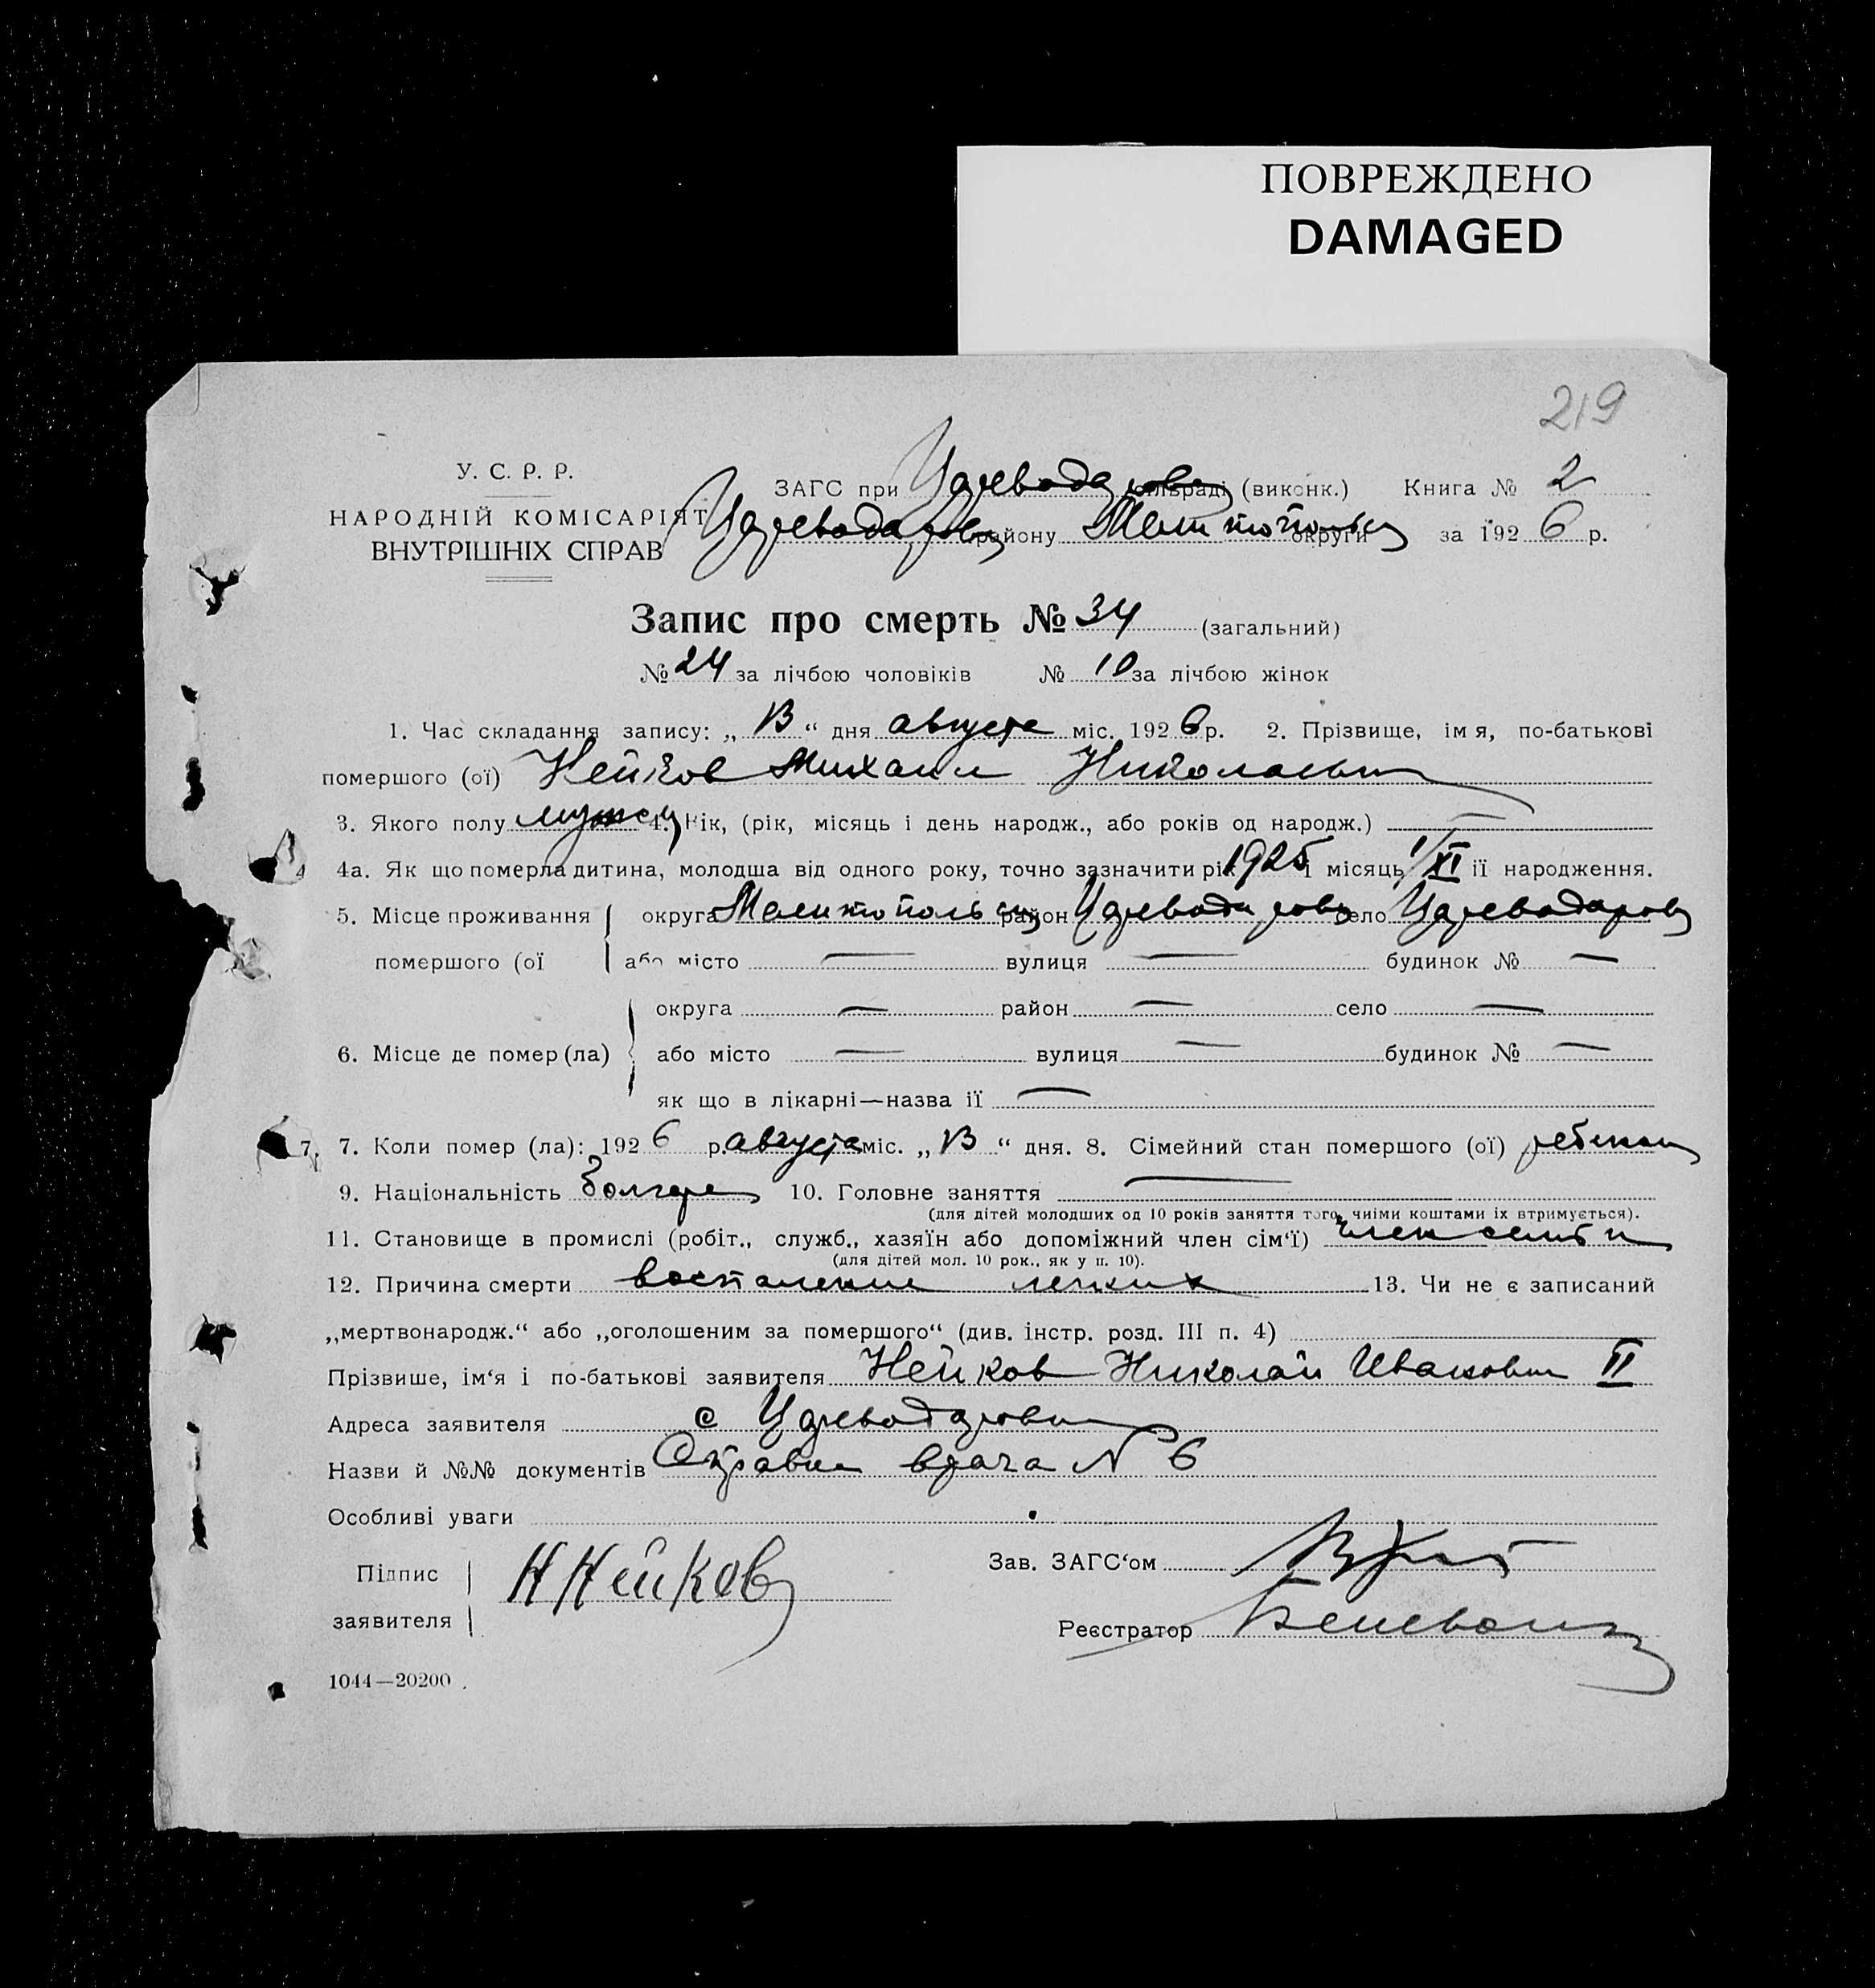 ПОВРЕЖДЕНО
DAMAGED
219
У. С. Р. Р.
ЗАГС при Цареводаровск сільраді (виконк.) Книга № 2
НАРОДНІЙ КОМІСАРІЯТ
ВНУТРІШНІХ СПРАВ
Цареводаровск району Мелитопольск округи за 1926 р.
Запис про смерть № 34 (загальний)
№ 24 за лічбою чоловіків № 10 за лічбою жінок
1. Час складання запису: „ 13 “ дня августа міс. 1926 р. 2. Прізвище, імя, по-батькові
помершого (ої) Нейков Михаил Николаевич
3. Якого полу мужск 4. Рік, (рік, місяць і день народж., або років од народж.) —
4а. Як що померла дитина, молодша від одного року, точно зазначити рік 1925 і місяць 1/XI ії народження.
5. Місце проживання округа Мелитопольск район Цареводаровск село Цареводаровк
помершого (ої або місто — вулиця — будинок № —
округа — район — село —
6. Місце де помер (ла) або місто — вулиця — будинок № —
як що в лікарні—назва ії —
7. 7. Коли помер (ла): 1926 р. августа міс. „ 13 “ дня. 8. Сімейний стан помершого (ої) ребенок
9. Національність болгарин 10. Головне заняття —
(для дітей молодших од 10 років заняття того, чиїми коштами їх втримується).
11. Становище в промислі (робіт., служб., хазяїн або допоміжний член сім‘ї) член семьи
(для дітей мол. 10 рок., як у п. 10).
12. Причина смерти воспаление легких 13. Чи не є записаний
„мертвонародж.“ або „оголошеним за помершого“ (див. інстр. розд. III п. 4)
Прізвише, ім‘я і по-батькові заявителя Нейков Николай Иванович II
Адреса заявителя с Цареводаровка
Назви й №№ документів Справка врача № 6
Особливі уваги
Підпис
заявителя Н Нейков
Зав. ЗАГС‘ом
Реєстратор
1044—20200